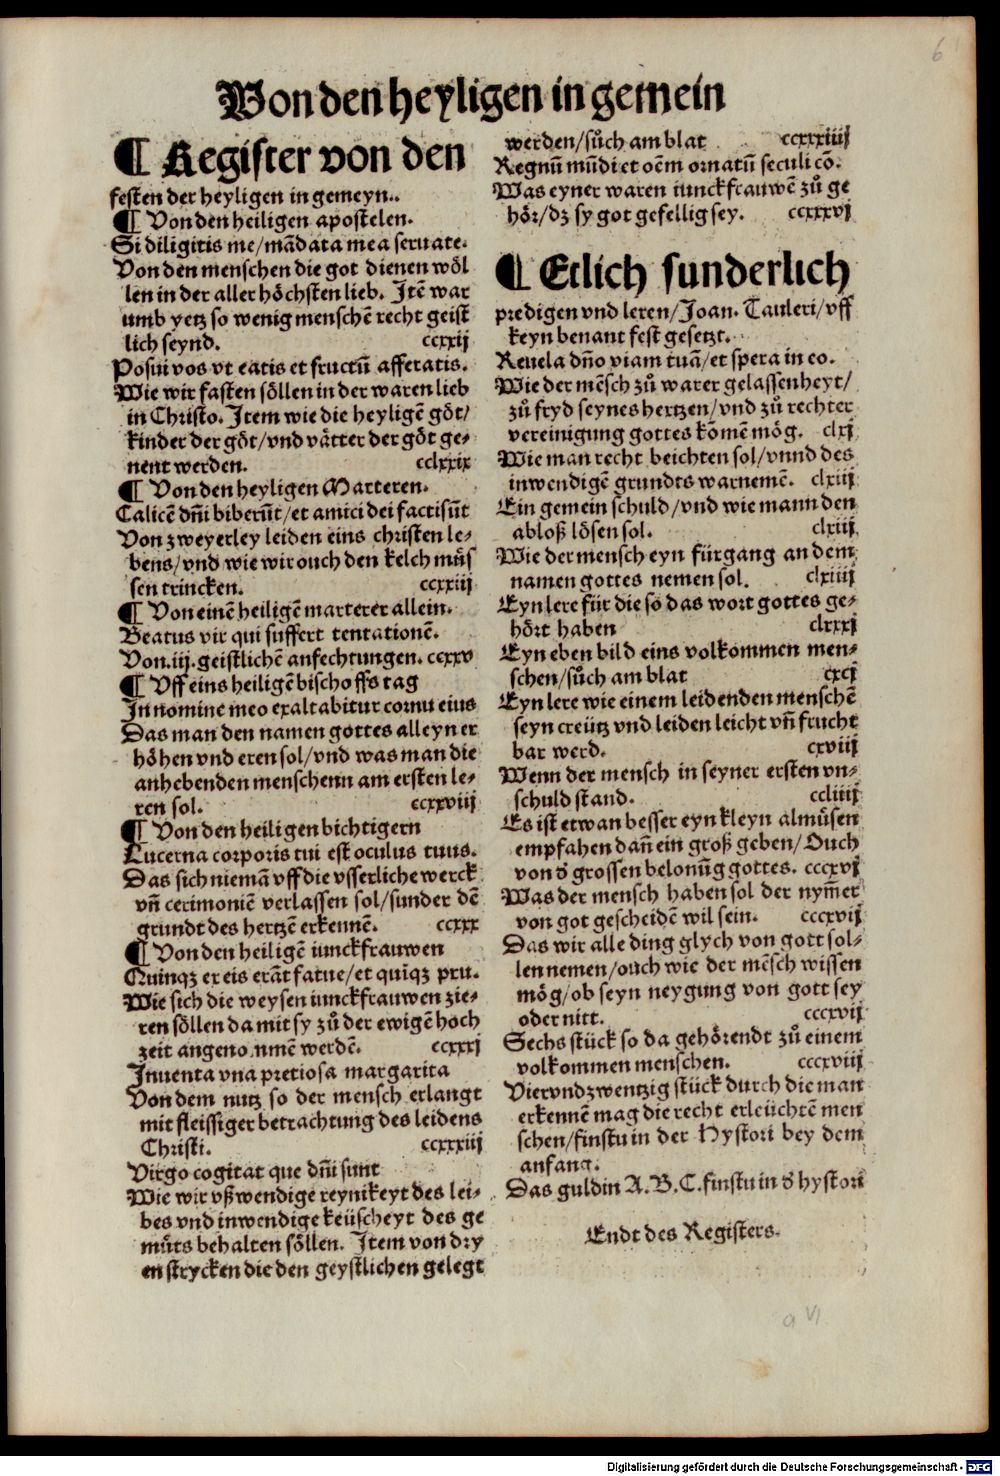 6
Von den heyligen in gemein
¶ Register von den
festen der heyligen in gemeyn..
¶ Von den heiligen apostelen.
Si diligitis me/mādata mea seruate.
Von den menschen die got dienen wöl
len in der aller höchsten lieb. Itē war
umb yetz so wenig menschē recht geist
lich seynd. ccxxij
Posui vos vt eatis et fructū afferatis.
Wie wir fasten söllen in der waren lieb
in Christo. Item wie die heyligē göt/
kinder der göt/vnd vätter der göt ge-
nent werden. cclxxix
¶ Von den heyligen Marteren.
Calicē dñi biberūt/et amici dei facti sūt
Von zweyerley leiden eins christen le-
bens/vnd wie wir ouch den kelch müs
sen trincken. ccxxiij
¶ Von einē heiligē marterer allein.
Beatus vir qui suffert tentationē.
Von .iij. geistlichē anfechtungen. ccxxv
¶ Vff eins heiligē bischoffs tag
In nomine meo exaltabitur cornu eius
Das man den namen gottes alleyn er
höhen vnd eren sol/vnd was man die
anhebenden menschenn am ersten le-
ren sol. ccxxviij
¶ Von den heiligen bichtigern
Lucerna corporis tui est oculus tuus.
Das sich niemā vff die vsserliche werck
vñ cerimoniē verlassen sol/sunder dē
grundt des hertzē erkennē. ccxxx
¶ Von den heiligē iunckfrauwen
Quinqz ex eis erāt fatue/et quiqz pru.
Wie sich die weysen iunckfrauwen zie-
ren söllen da mit sy zů der ewigē hoch
zeit angenommē werdē. ccxxxj
Inuenta vna pretiosa margarita
Von dem nutz so der mensch erlangt
mit fleissiger betrachtung des leidens
Christi. ccxxxiij
Virgo cogitat que dñi sunt
Wie wir vßwendige reynikeyt des lei-
bes vnd inwendige keüscheyt des ge
müts behalten söllen. Item von dry
en strycken die den geystlichen gelegt
werden/sůch am blat ccxxxiiij
Regnū mūdi et oēm ornatū seculi cō.
Was eyner waren iunckfrauwē zů ge
hör/dz sy got gefellig sey. ccxxxvj
¶ Etlich sunderlich
predigen vnd leren/Joan. Tauleri/vff
keyn benant fest gesetzt.
Reuela dño viam tuā/et spera in eo.
Wie der mēsch zů warer gelassenheyt/
zů fryd seynes hertzen/vnd zů rechter
vereinigung gottes kōmē mög. clxj
Wie man recht beichten sol/vnnd des
inwendigē grundts warnemē. clxiij
Ein gemein schuld/vnd wie mann den
abloß lösen sol. clxiij
Wie der mensch eyn fürgang an dem
namen gottes nemen sol. clxiiij
Eyn lere für die so das wort gottes ge-
hört haben clxxxj
Eyn eben bild eins volkommen men-
schen/sůch am blat cxcj
Eyn lere wie einem leidenden menschē
seyn creütz vnd leiden leicht vñ frucht
bar werd. cxviij
Wenn der mensch in seyner ersten vn-
schuld stand. ccliiij
Es ist etwan besser eyn kleyn almůsen
empfahen dañ ein groß geben/Ouch
von d' grossen belonūg gottes. cccxvj
Was der mensch haben sol der nym̄er
von got gescheidē wil sein. cccxvij
Das wir alle ding glych von gott sol-
len nemen/ouch wie der mēsch wissen
mög/ob seyn neygung von gott sey
oder nitt. cccxvij
Sechs stück so da gehörendt zů einem
volkommen menschen. cccxviij
Viervndzwentzig stück durch die man
erkennē mag die recht erleüchtē men
schen/finstu in der Hystori bey dem
anfang.
Das guldin A.B.C. finstu in d' hystori
Endt des Registers.
a VI
Digitalisierung gefördert durch die Deutsche Forschungsgemeinschaft - DFG